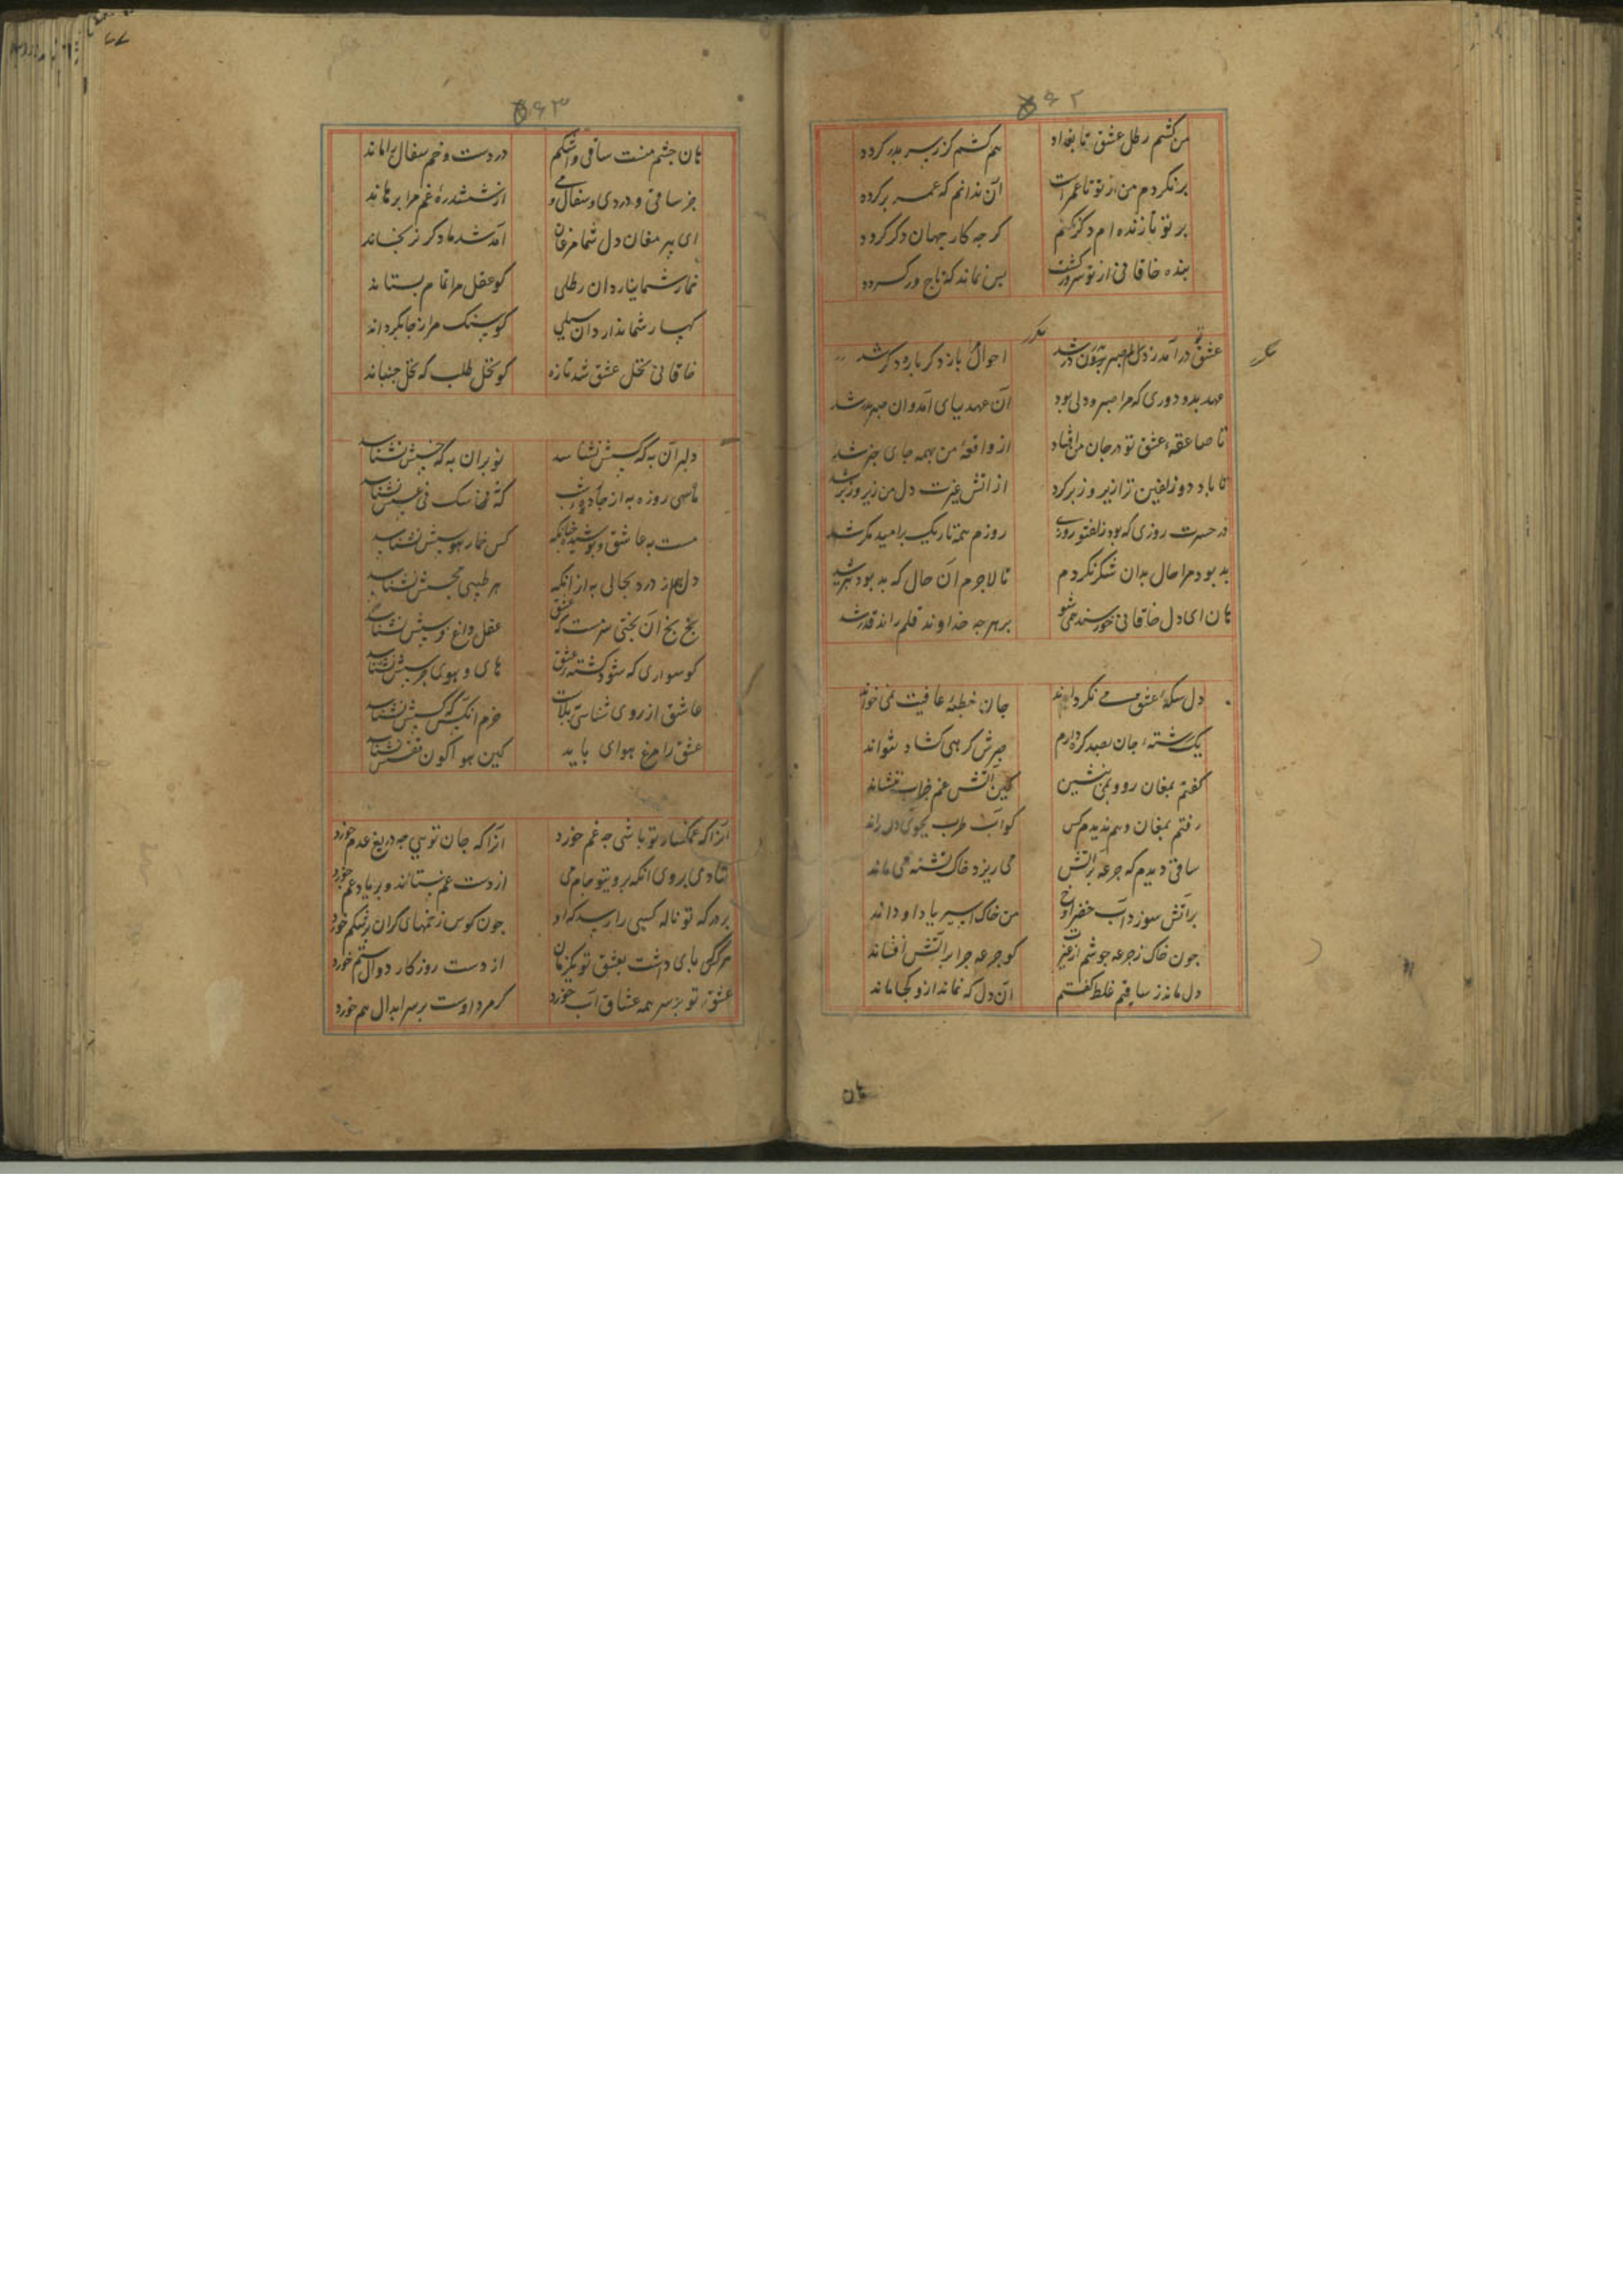 ۵۶۲
من کشم رطل عشق تا بغداد هم کشم کز زبر بدر کردد
برنکردم من از تو تا عمرست آن ندانم که عمر برکردد
بر تو تا زنده ام دکر نکنم کرجه کار جهان دکر کردد
بنده خاقانی از تو سرور کشت بس نماند که تاج ور کردد
مکرر
عشق تو درآمد ز دلم صبر بدر شد احوال باز دکر باره دکر شد
عهد بد و دوری که مرا صبر و دلی بود آن عهد بپای آمد و ان صبر بدر شد
تا صاعقهٔ عشق تو در جان من افتاد از واقعهٔ من بهمه جای خبر شد
تا باد دو زلفین ترا زیر و زبر کرد از اتش غیرت دل من زیر و زبر شد
در حسرت روزی که بود زلف تو روزی روزم همه تاریک برامید مکر شد
بد بود مرا حال بدان شکر نکردم تا لاجرم آن حال که بد بود بتر شد
هان ای دل خاقانی خورسند همی شو بر هرجه خداوند قلم راند قدر شد
دل سکهٔ عشق می نکرداند جان خطبهٔ عافیت نمی خواند
یک رشتهٔ جان بصد کره دارم صبرش کرهی کشاد نتواند
کفتم بمغان رو و بمی بنشین کین آتش غم خراب ننشاند
رفتم بمغان و هم ندیدم کس کو آب طرب بجوی دل راند
ساقی دیدم که جرعه بر آتش می ریزد خاک تشنه می ماند
بر آتش سوزد آب خضر او من خاک اسیر باد او داند
جون خاک ز جرعه جوشم از غیرت کو جرعه جرا بر آتش افشاند
دل ماند ز ساقیم غلط کفتم ان دل که نماند ازو کجا ماند
۵۶۳
هان جشم منست ساقی و اشکم دردست و خم سفال را ماند
جز ساقی و دردی و سفال و می از ششدرهٔ غم مرا برهاند
ای پیر مغان دل شما مرغان آمد شد ما دکر نرنجاند
خمار شما ندارد ان رطلی کو عقل مرا تمام بستاند
کهسار شما ندارد ان سیلی کو سنک مرا ز جا بکرداند
خاقانی نخل عشق شد تازه کو نخل طلب که نخل جنباند
دلبر آن به که کسش نشناسد نوبر ان به که خسش نشناسد
ماهی روزه به از جاده شب که خاسک فی عسش نشناسد
مست به عاشق و پوشیده جنانکه کس خمار هوسش نشناسد
دلم از درد بحالی به از انکه هر طبیبی مجسش نشناسد
بخ بخ آن بختی سرمست که عشق عقل داغ فرسش نشناسد
کو سواری که شود کشته عشق های و هوی جرسش نشناسد
عاشق از روی شناسی بلاست خرم انکس که کسش نشناسد
عشق را مرغ هوای باید کین هوا کون قفسش نشناسد
آنرا که غمکسار تو باشی جه غم خورد آنرا که جان تویی جه دریغ عدم خورد
شادی بروی انکه بروی تو جام می از دست غم بستاند و بر یاد غم خورد
بر درکه تو ناله کسی را رسد که او جون کوس زخمهای کران بر شکم خورد
هر کس که پای داشت بعشق تو یکزمان از دست روزکار دوال ستم خورد
عشق تو بر سر همه عشاق آب خورد کر مرد اوست بر سر ابدال هم خورد